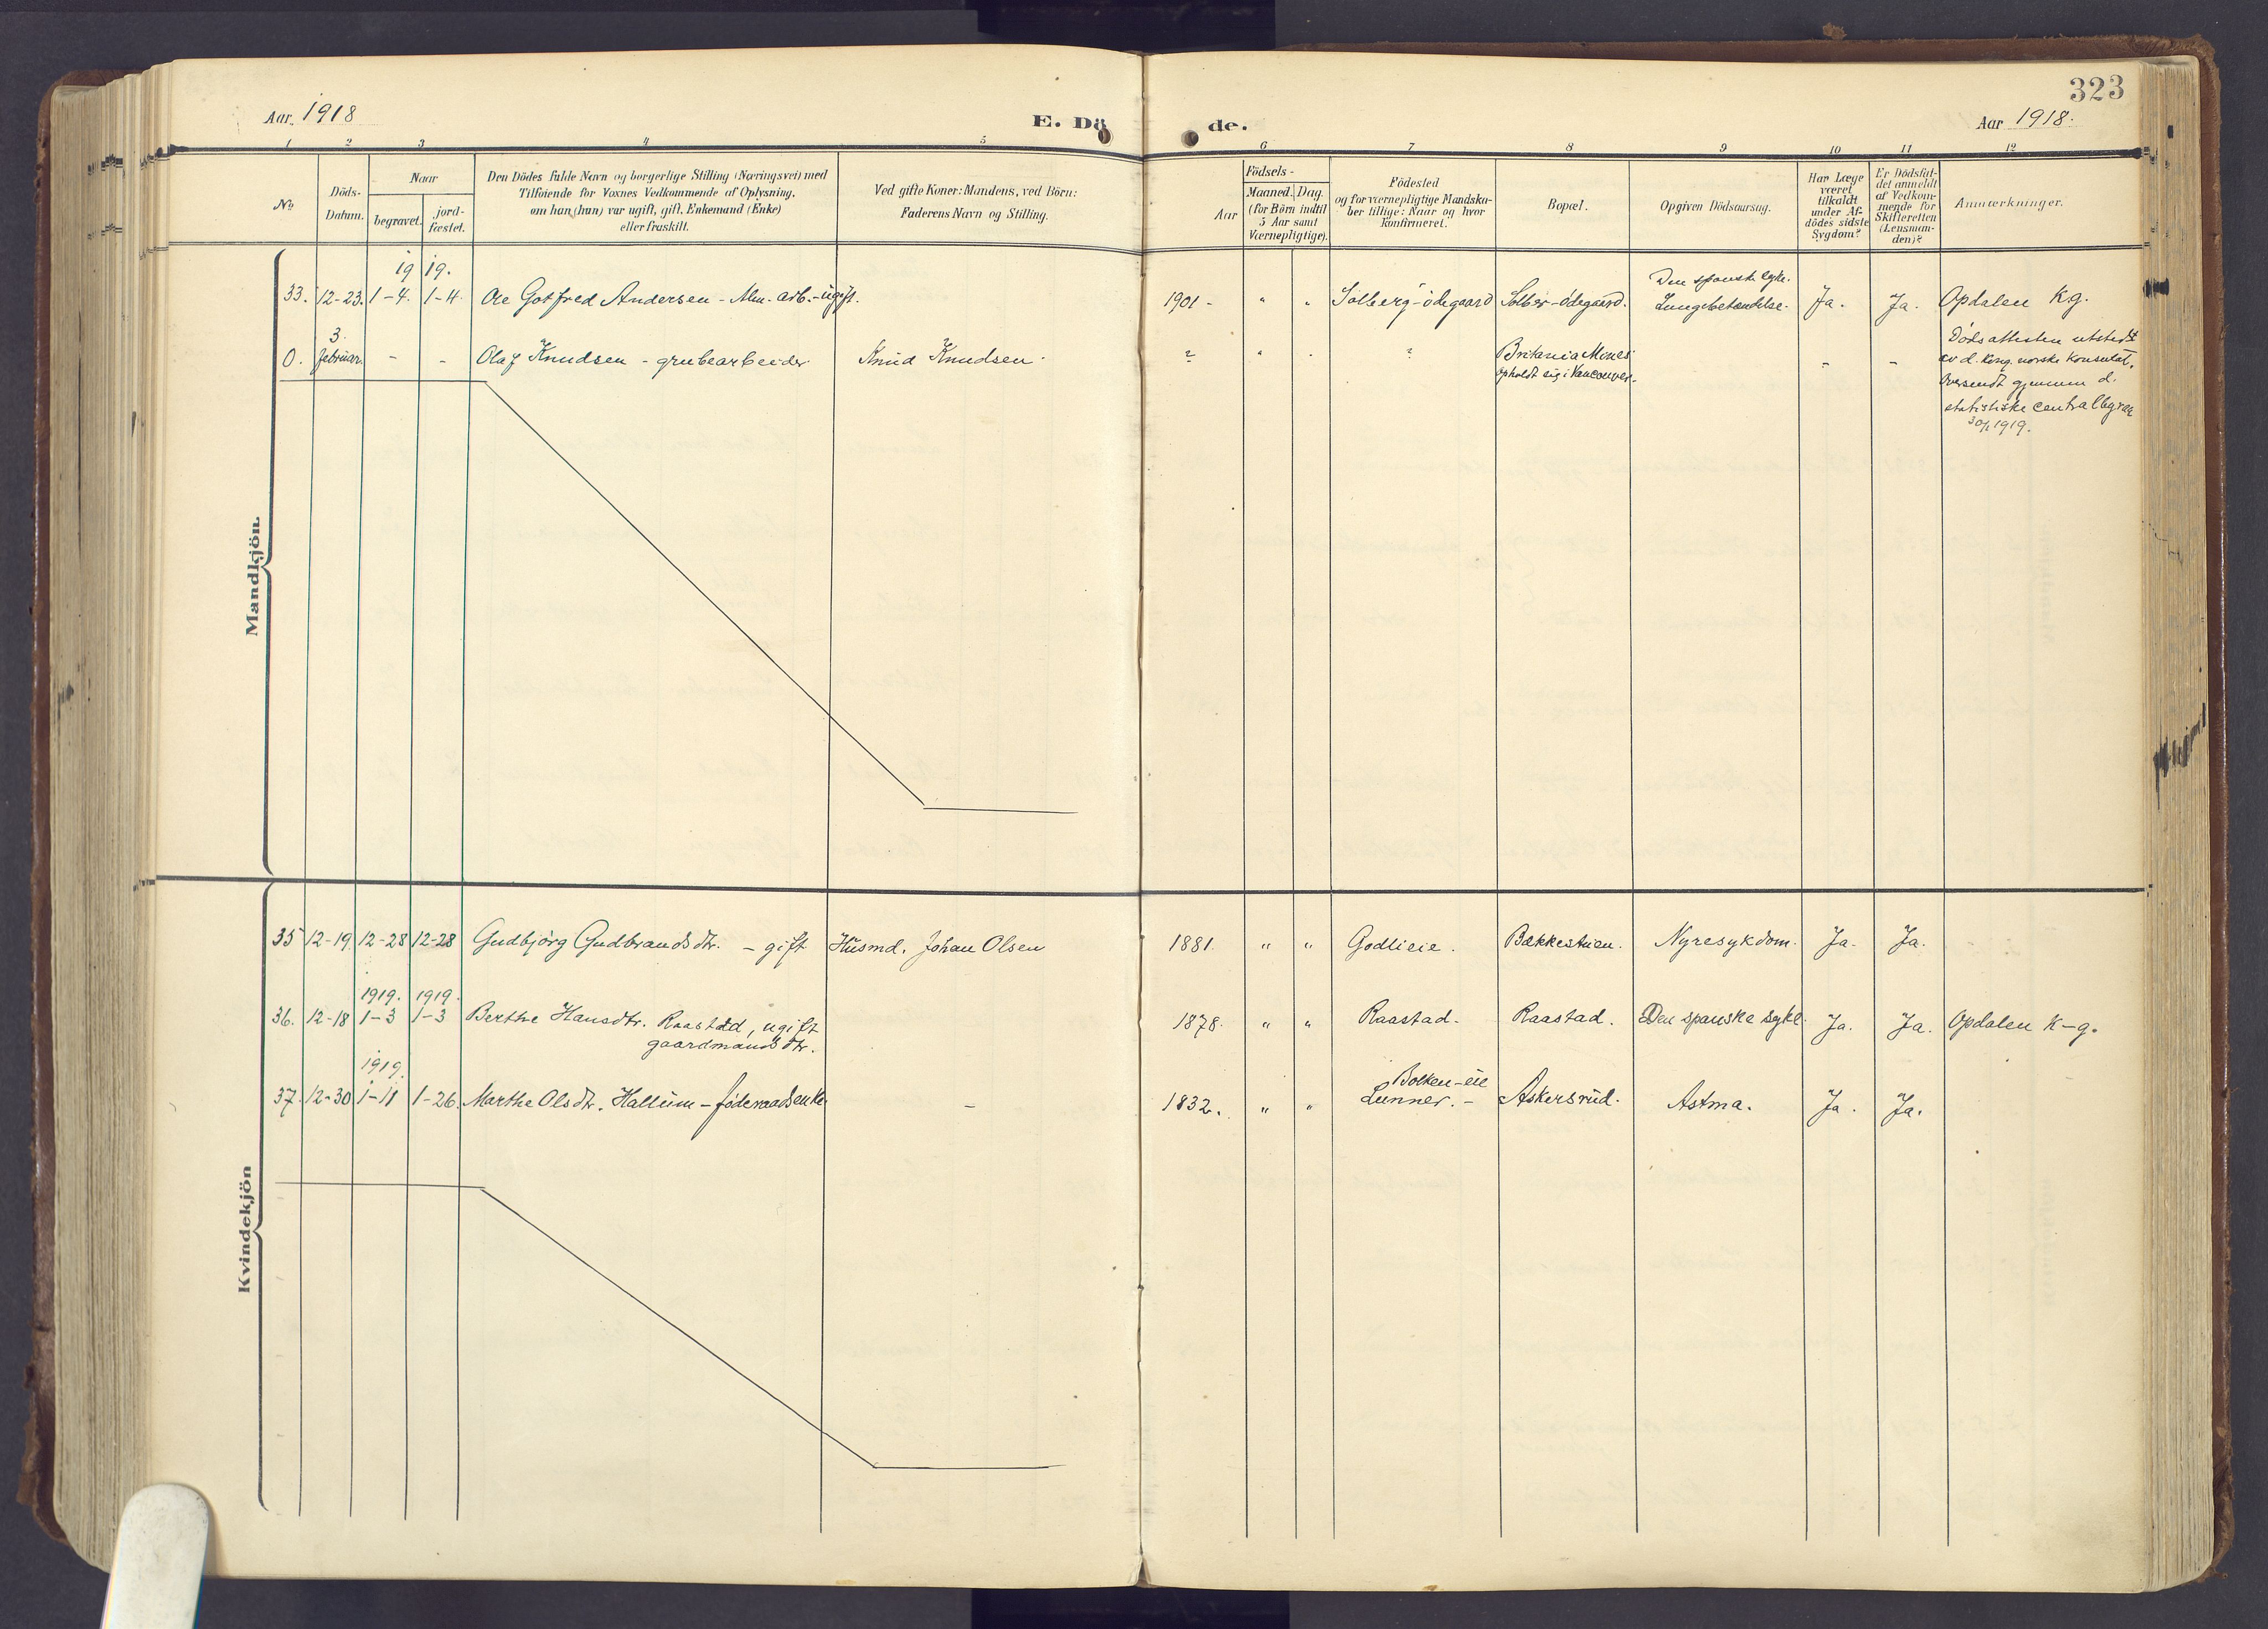 323
Aar 1918
E. Dö de.
Aar 1918.
1 2 3 4 5 6 7 8 9 10 11 12
No
Döds-
Datum.
Naar
begravet.
jord-
fæstet.
Den Dödes fulde Navn og borgerlige Stilling (Næringsvei) med
Tilföiende for Voxnes Vedkommende af Oplysning.
om han (hun) var ugift, gift, Enkemand (Enke)
eller fraskilt.
Ved gifte Koner: Mandens, ved Börn:
Faderens Navn og Stilling.
Födsels-
Aar
Maaned. Dag.
(for Börn indtil
5 Aar samt
Værnepligtige).
Födested
og for værnepligtige Mandska-
ber tillige: Naar og hvor
konfirmeret.
Bopæl.
Opgiven Dödsaarsag.
Har Læge
været
tilkaldt
under Af-
dödes sidste
Sygdom?
Er Dödsfal-
det anmeldt
af Vedkom-
mende for
Skifteretten
(Lensman-
den)?
Anmærkninger.
Mandkjön.
19 19.
Den spanske syke.
33. 12-23. 1-4. 1-4. Ole Gotfred Andersen - Alm. arb. - ugift. 1901 - " " Solberg-ödegaard Solber-ödegaard. Lungebetændelse. Ja. Ja. Opdalen K.g.
3.
0. februar. - - Olaf Knudsen - grubearbeider Knud Knudsen. ? " " ? Britania Mines
opholdt sig i Vancouver. - -
Dödsattesten utstedt
av d. kong. norske konsulat.
Oversendt gjennem d.
statistiske centralbyraa
30/1 1919.
Kvindekjön
35 12-19 12-28 12-28 Gudbjörg Gudbrandsdtr. - gift Husmd. Johan Olsen 1881. " " Godlieie. Bækkestuen. Nyresykdom. Ja. Ja.
1919. 1919.
36. 12-18 1-3 1-3 Berthe Hansdtr. Raastad, ugift 1878. " " Raastad. Raastad. Den spanske syke. Ja. Ja. Opdalen K-g.
gaardmandsdtr.
1919.
Bolken-eie
37. 12-30 1-11 1-26. Marthe Olsdtr. Hallum - föderaadsenke - 1832. " " Lunner. - Askersrud. Astma. Ja. Ja.